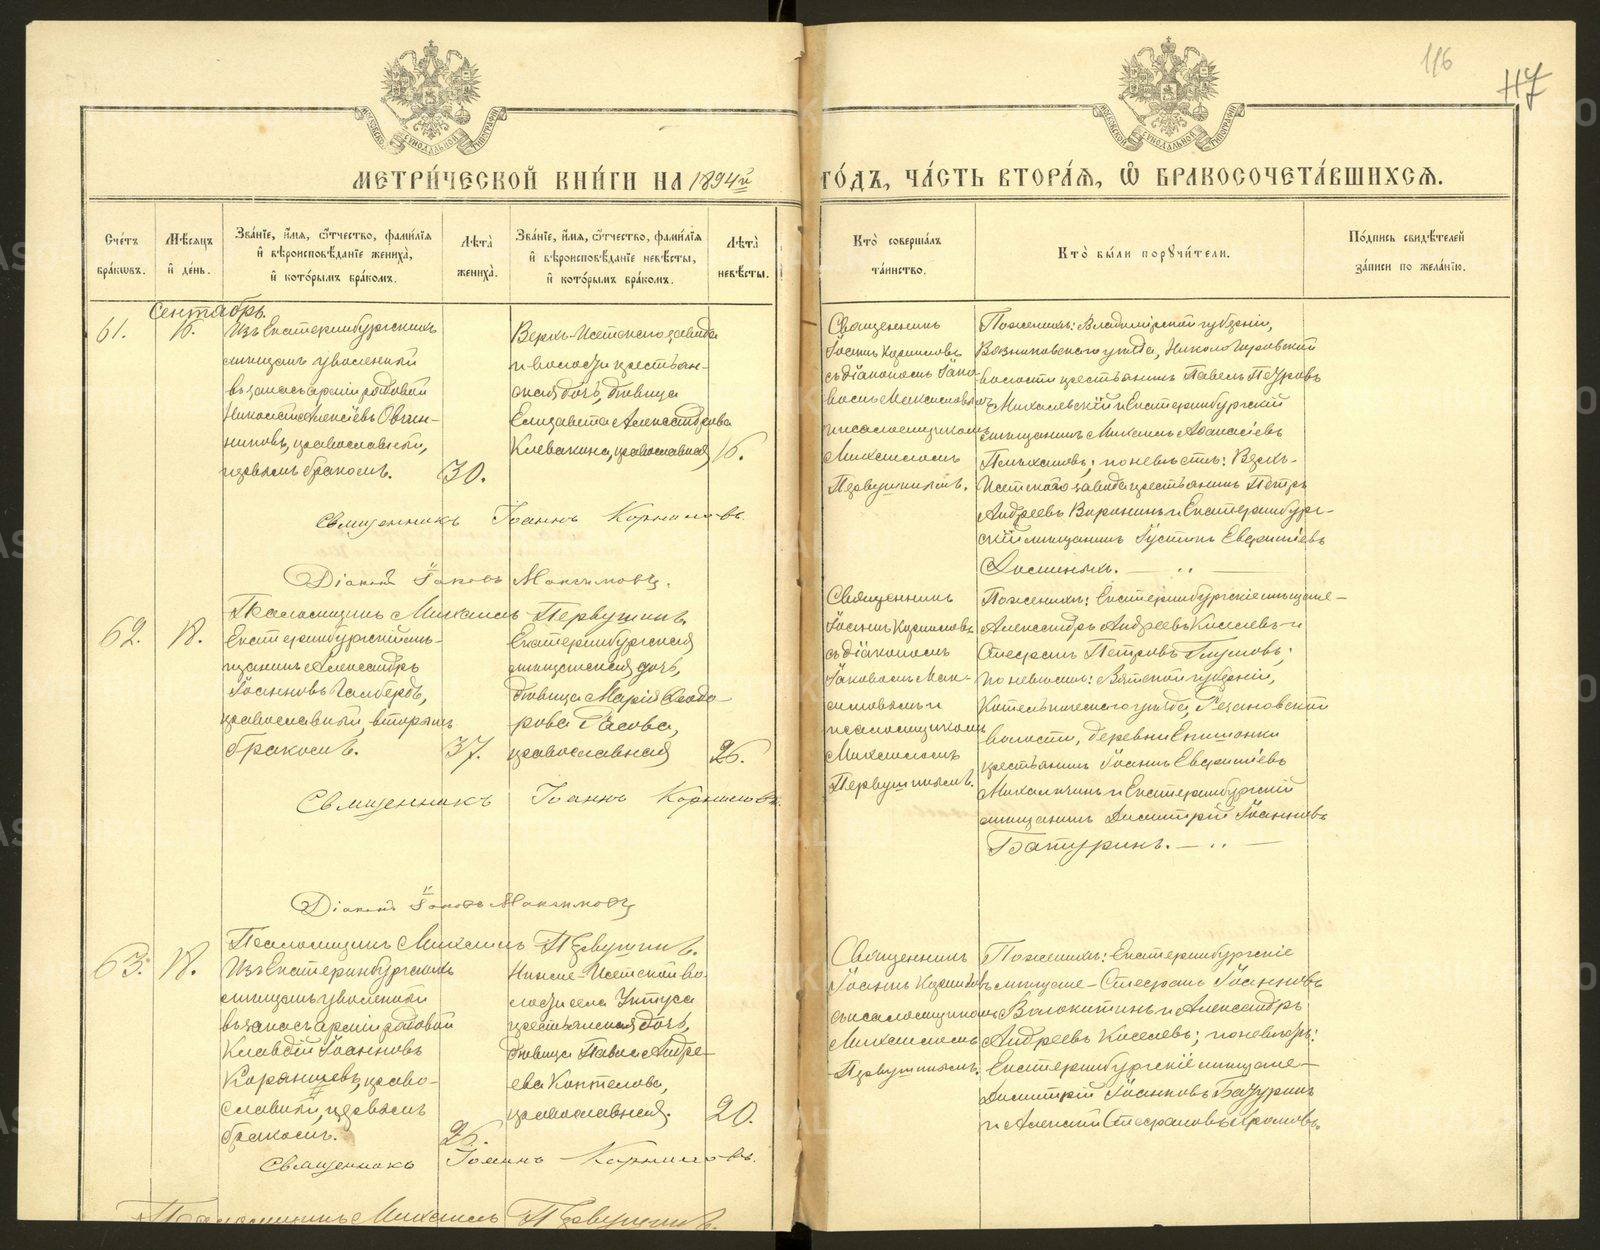 116
117
МОСКОВСКОЙ СѴНОДАЛЬНОЙ ТИПОГРАФІИ
МОСКОВСКОЙ СѴНОДАЛЬНОЙ ТИПОГРАФІИ
МЕТРИ́ЧЕСКОЙ КНИ́ГИ НА 1894й ГО́ДЪ, ЧА́СТЬ ВТОРА́Я, Ѽ БРАКОСОЧЕТА́ВШИХСЯ.
Сче́тъ бра́кѡвъ.
Мѣ́сяцъ и҆ де́нь.
Зва́нїе, и҆́мя, ѻ҆́тчество, фами́лїя и҆ вѣроисповѣ́данїе жениха̀, и҆ кото́рымъ бра́комъ.
Лѣ́та̀ жениха̀.
Зва́нїе, и҆́мя, ѻ҆́тчество, фами́лїя и҆ вѣроисповѣ́данїе невѣ́сты, и҆ кото́рымъ бра́комъ.
Лѣ́та̀ невѣ́сты.
Кто̀ соверша́лъ та́инство.
Кто̀ бы́ли порꙋчи́тели.
По́дпись свидѣ́телей за́писи по жела́нїю.
Сентябрь
61.
16.
Изъ Екатеринбургскихъ
мѣщанъ уволенный
въ запасъ арміи рядовой
Николай Алексіевъ Овчин-
никовъ, православный,
первымъ бракомъ.
30.
Верхъ-Исетскаго завода
и волости крестьян-
ская дочь, дѣвица
Елизавета Александрова
Клевакина, православная
16.
Священникъ
Іоаннъ Корниловъ
съ діакономъ Іако-
вомъ Максимовымъ
и псаломщикомъ
Михаиломъ
Первушинымъ.
По женихѣ: Владимірской губерніи,
Вязниковскаго уѣзда, Николо-Горовской
волости крестьянинъ Павелъ Петровъ
Михалевскій и Екатеринбургскій
мѣщанинъ Михаилъ Аѳанасіевъ
по невѣстѣ: Верхъ-
Исетскаго завода крестьянинъ Петръ
Андреевъ Воронинъ и Екатеринбург-
скій мѣщанинъ Іустинъ Евфиміевъ
Священникъ Іоаннъ Корниловъ.
Діаконъ Іаковъ Максимовъ.
Псаломщикъ Михаилъ Первушинъ.
62.
18.
Екатеринбургскій мѣ-
щанинъ Александръ
Іоанновъ Гальбердъ,
православный, вторымъ
бракомъ.
37.
Екатеринбургская
мѣщанская дочь,
дѣвица Марія Ѳеодо-
рова Гасова,
православная
26.
Священникъ
Іоаннъ Корниловъ
съ діакономъ
Іаковомъ Мак-
симовымъ и
псаломщикомъ
Михаиломъ
Первушинымъ.
По женихѣ: Екатеринбургскіе мѣщане-
Александръ Андреевъ Киселевъ и
Стефанъ Петровъ Глумовъ;
по невѣстѣ: Вятской губерніи,
Котельническаго уѣзда,
волости, деревни
крестьянинъ Іоаннъ Евфиміевъ
и Екатеринбургскій
мѣщанинъ Димитрій Іоанновъ
Батуринъ.
Священникъ Іоаннъ Корниловъ.
Діаконъ Іаковъ Максимовъ
Псаломщикъ Михаилъ Первушинъ.
63.
18.
Изъ Екатеринбургскихъ
мѣщанъ уволенный
въ запасъ арміи рядовой
Клавдій Іоанновъ
Корянишевъ, право-
славный, первымъ
бракомъ.
26.
Нижне-Исетской во-
лости села Уктуса
крестьянская дочь,
дѣвица Павла Андре-
ева Коптелова,
православная.
20.
Священникъ
Іоаннъ Корниловъ
съ псаломщикомъ
Михаиломъ
Первушинымъ.
По женихѣ: Екатеринбургскіе
мѣщане - Стефанъ Іоанновъ
Волокитинъ и Александръ
Андреевъ Киселевъ; по невѣстѣ:
Екатеринбургскіе мѣщане-
Димитрій Іоанновъ Батуринъ
и Алексій Стефановъ Хромовъ.
Священникъ Іоаннъ Корниловъ.
Псаломщикъ Михаилъ Первушинъ.